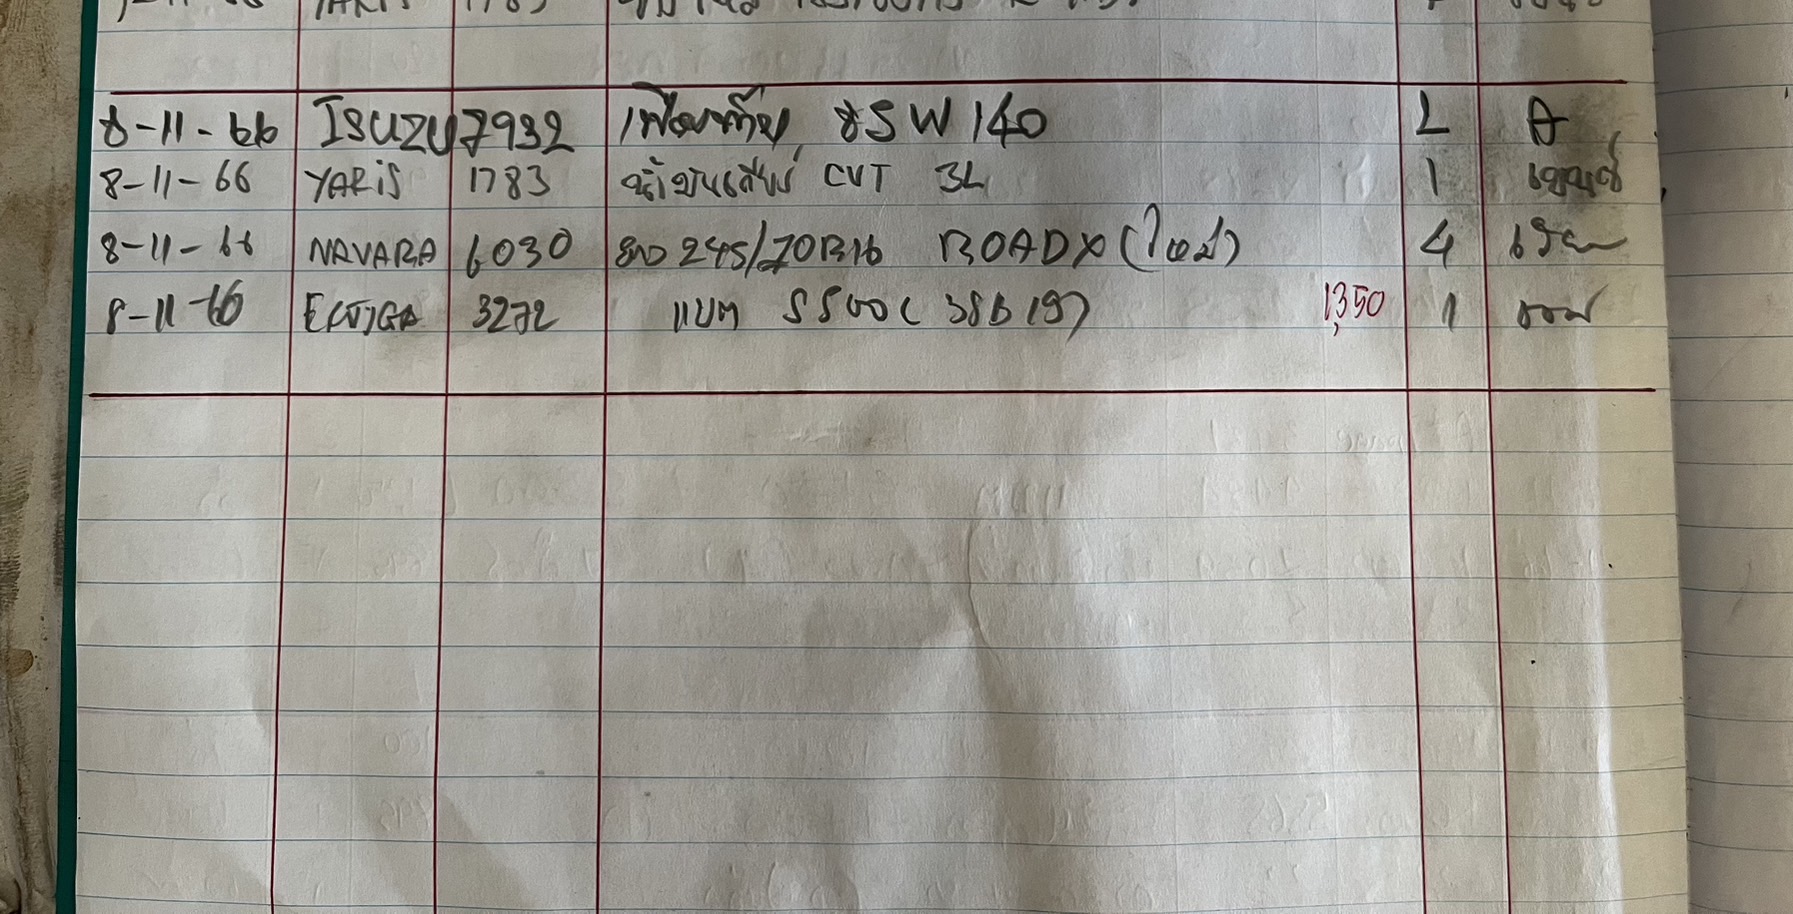 YARIS 1783
8-11-66 ISUZU 7932 เฟืองท้าย, 85W140 2 A
8-11-66 YARIS 1783 น้ำมันเกียร์ CVT 3L 1
8-11-66 NAVARA 6030 ยาง 245/70R16 ROADX (ใหม่) 4
8-11-66 ERTIGA 3272 แบต SS00L (38B19) 1,350 1